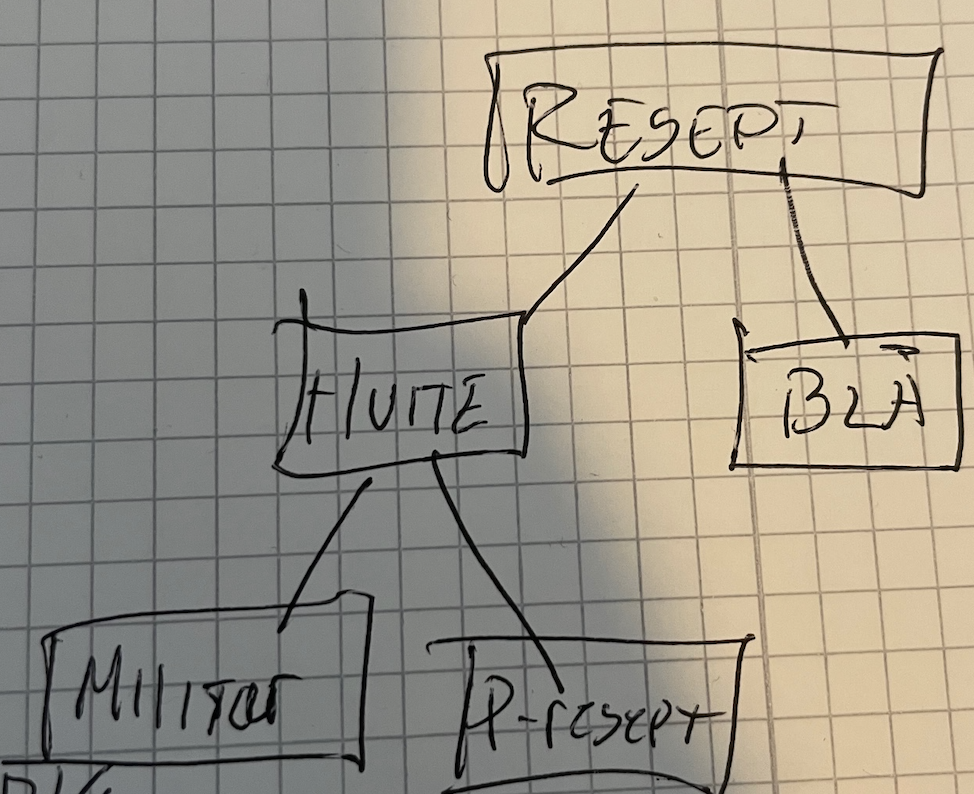 RESEPT
HVITE
BLÅ
Militær
P-resept